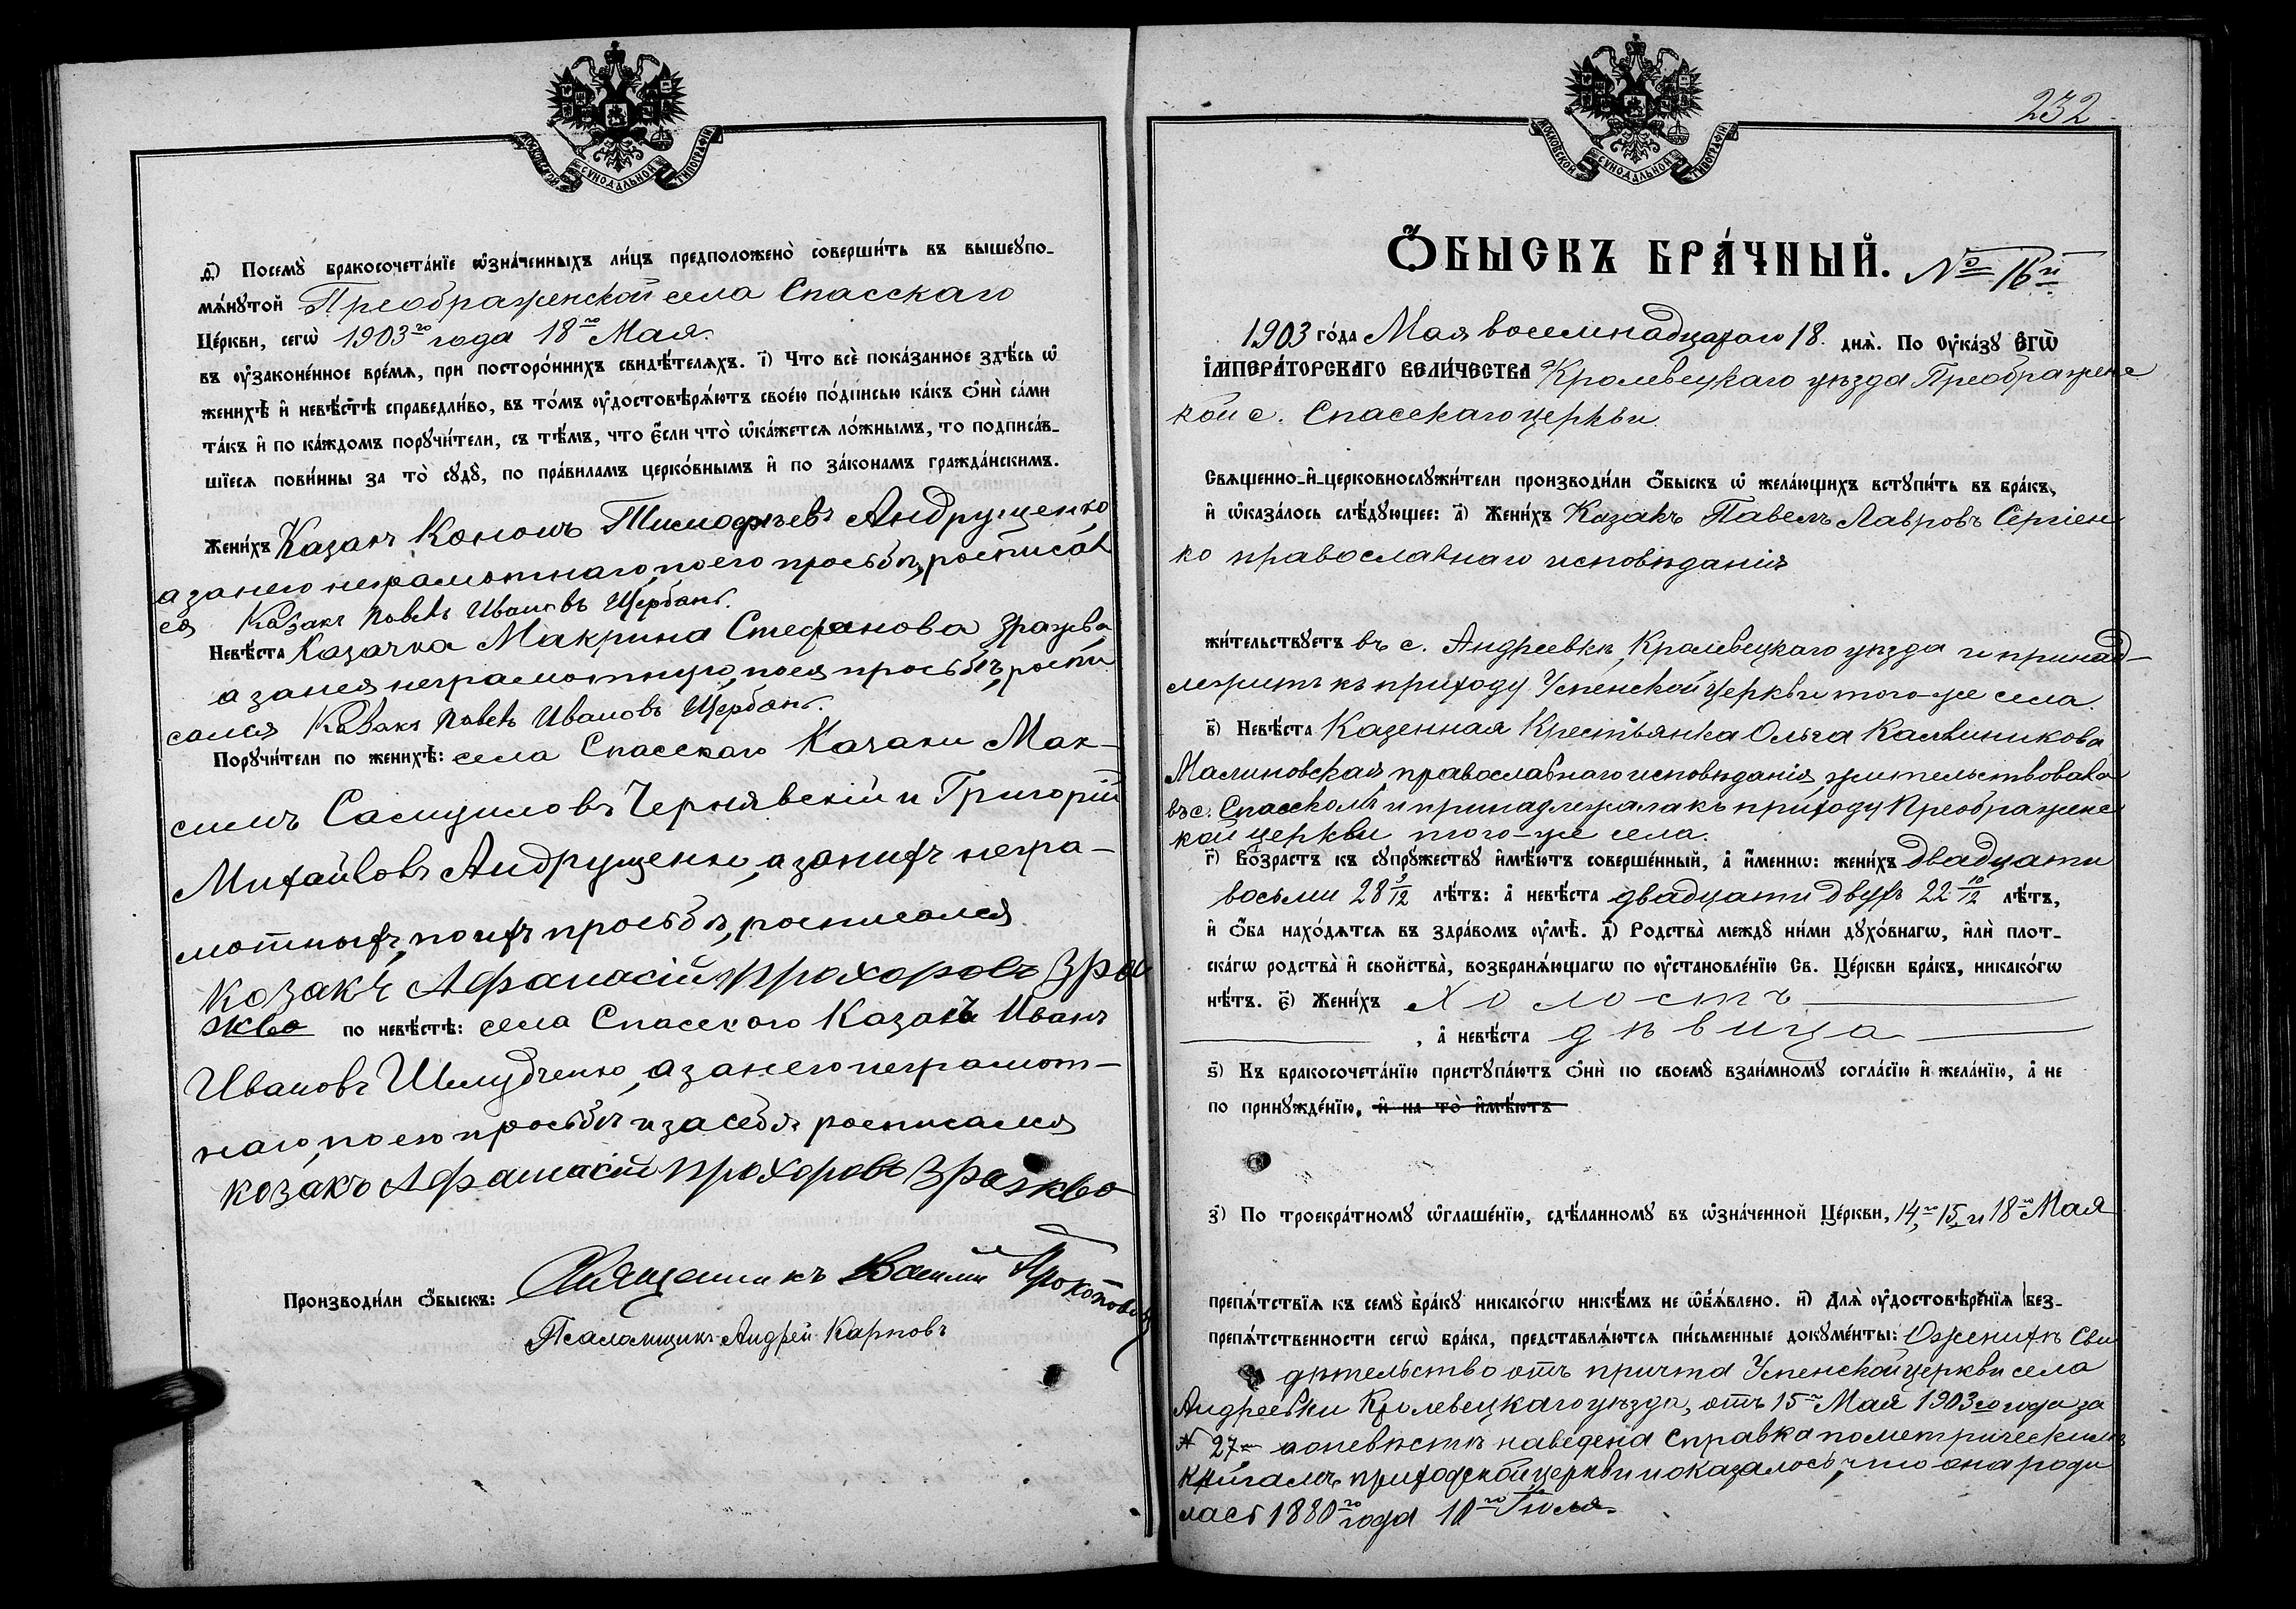 МОСКОВСКОЙ СУНОДАЛЬНОЙ ТИПОГРАФІИ
д҃і) Посемꙋ̀ бракосочета́нїе ѡ҆зна́ченныхъ ли́цъ предположено̀ соверши́ть въ вышеꙋпо-
мѧ́нꙋтой Преображенской села Спасскаго
Це́ркви, сегѡ̀ 1903го года 18го Мая.
въ ᲂу҆законе́нное вре́мѧ, при посторо́ннихъ свидѣ́телѧхъ. і҃) Что всѐ пока́занное здѣ́сь ѡ҆
женихѣ̀ и҆ невѣ́стѣ справедли́во, въ то́мъ ᲂу҆достовѣрѧ́ютъ свое́ю по́дписью ка́къ ѻ҆нѝ са́ми
та́къ и҆ по ка́ждомъ порꙋчи́тели, съ тѣ́мъ, что є҆́сли что̀ ѡ҆ка́жетсѧ ло́жнымъ, то подписа́в-
шїесѧ пови́нны за то̀ сꙋдꙋ̀, по пра́виламъ церко́внымъ и҆ по зако́намъ гражда́нскимъ.
Жени́хъ Казакъ Кононъ Тимофѣевъ Андрущенко,
а за него неграмотнаго, по его просьбѣ, росписал
ся Казакъ Павелъ Ивановъ Щербакъ.
Невѣ́ста Казачка Макрина Стефанова Зражева,
а за нея неграмотную, по ея просьбѣ, роспи
сался Казакъ Павелъ Ивановъ Щербакъ.
Порꙋчи́тели по женихѣ̀: села Спасскаго Казаки Мак-
симъ Самуиловъ Чернявскій и Григорій
Михайловъ Андрущенко, а за нихъ негра-
мотныхъ, по ихъ просьбѣ, росписался
козакъ Афанасій Прохоровъ Зра
жево по невѣ́стѣ: села Спасского Казакъ Иванъ
Ивановъ Шмудченко, а за него неграмот-
наго, по его просьбѣ и за себя росписался
козакъ Афанасій Прохоровъ Зражево
Производи́ли ѻ҆́быскъ: Священникъ Василій Прокоповичъ
Псаломщикъ Андрей Карповъ
232
МОСКОВСКОЙ СУНОДАЛЬНОЙ ТИПОГРАФІИ
Ѻ҆́БЫСКЪ БРА́ЧНЫЙ. № 16й
1903 го́да Мая восемнадцатаго 18. днѧ̀. По ᲂу҆ка́зꙋ Є҆ГѠ̀
І҆МПЕРА́ТОРСКАГО ВЕЛИ́ЧЕСТВА Кролевецкаго уѣзда Преображенс
кой с. Спасскаго церкви
Свѧщенно-и҆-церковнослꙋжи́тели производи́ли ѻ҆́быскъ ѡ҆ жела́ющихъ встꙋпи́ть въ бра́къ,
и҆ ѡ҆каза́лось слѣ́дꙋющее: а҃) Жени́хъ Казакъ Павелъ Лавровъ Сергіен
ко православнаго исповѣданія
жи́тельствꙋетъ въ с. Андреевкѣ, Кролевецкаго уѣзда и принад-
лежитъ къ приходу Успенской Церкви того-же села.
в҃) Невѣ́ста Казенная Крестьянка Ольга Калиникова
Малиновская, православнаго исповѣданія, жительствовала
въ с. Спасскомъ и принадлежала къ приходу Преображенс
кой церкви того-же села.
г҃) Во́зрастъ къ сꙋпрꙋ́жествꙋ и҆мѣ́ютъ соверше́нный, а҆ и҆́менно: жени́хъ двадцати
восьми 28 9/12 лѣ́тъ: а҆ невѣ́ста двадцати двухъ 22 10/12 лѣ́тъ,
и҆ ѻ҆́ба нахо́дѧтсѧ въ здра́вомъ ᲂу҆мѣ̀. д҃) Родства̀ междꙋ̀ ни́ми дꙋхо́внагѡ, и҆лѝ плот-
ска́гѡ родства̀ и҆ сво́йства̀, возбранѧ́ющагѡ по ᲂу҆становле́нїю Св. Це́ркви бра́къ, никако́гѡ
нѣ́тъ. є҃) Жени́хъ холостъ
, а҆ невѣ́ста дѣвица
ѕ҃) Къ бракосочета́нїю пристꙋпа́ютъ ѻ҆нѝ по своемꙋ̀ взаи́мномꙋ согла́сїю и҆ жела́нїю, а҆ не
по принꙋжде́нїю, и҆ на то̀ и҆мѣ́ютъ
з҃) По троекра́тномꙋ ѡ҆глаше́нїю, сдѣ́ланномꙋ въ ѡ҆зна́ченной Це́ркви, 14го, 15 и 18го Мая
препѧ́тствїѧ къ семꙋ̀ бра́кꙋ никако́гѡ никѣ́мъ не ѡ҆б̾ѧ́влено. и҃) Длѧ̀ ᲂу҆достовѣре́нїѧ без-
препѧ́тственности сегѡ̀ бра́ка, представлѧ́ютсѧ пи́сьменные докꙋме́нты: О женихѣ Сви
дѣтельство отъ причта Успенской церкви села
Андреевки Кролевецкаго уѣзда, отъ 15го Мая 1903го года за
№ 27 а о невѣстѣ наведена справка по метрическимъ
книгамъ приходской церкви и оказалось, что она роди
лась 1880го года 10го Іюля.